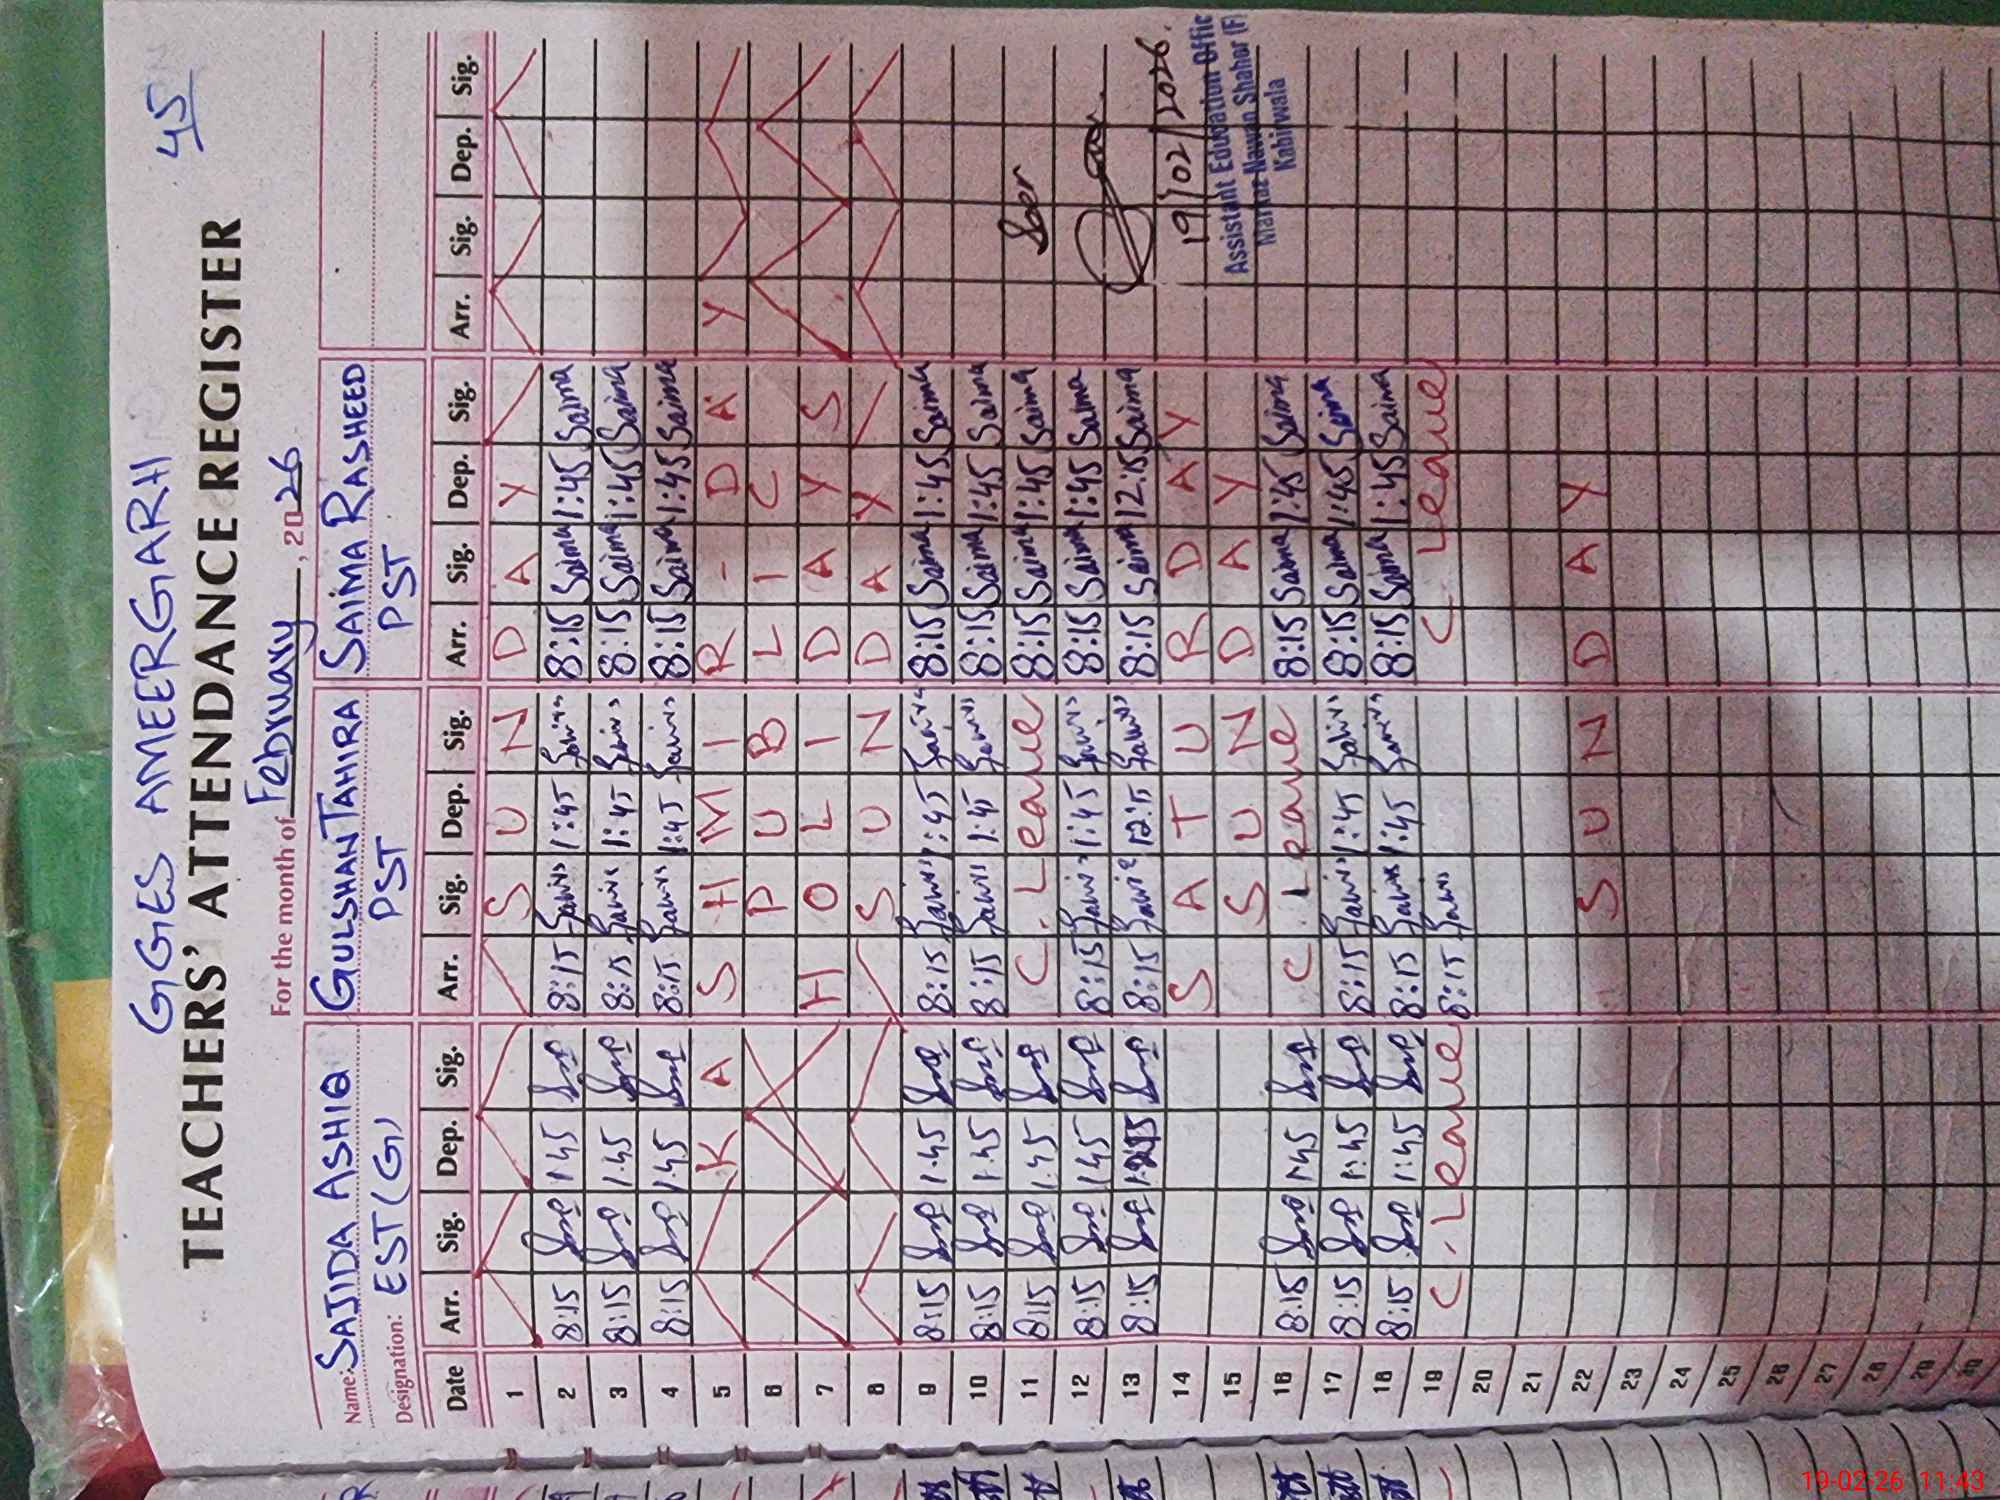 GGES AMEERGARHI 45
TEACHERS' ATTENDANCE REGISTER
For the month of February, 2026
Name: SAJIDA ASHIQ GULSHAN TAHIRA SAIMA RASHEED
Designation: EST (G) PST PST
Date Arr. Sig. Dep. Sig. Arr. Sig. Dep. Sig. Arr. Sig. Dep. Sig. Arr. Sig. Dep. Sig.
1 S U N D A Y
2 8:15 1:45 8:15 1:45 8:15 Saima 1:45 Saima
3 8:15 1:45 8:15 1:45 8:15 Saima 1:45 Saima
4 8:15 1:45 8:15 1:45 8:15 Saima 1:45 Saima
5 K A S H M I R - D A Y
6 P U B L I C
7 H O L I D A Y S
8 S U N D A Y
9 8:15 1:45 8:15 1:45 8:15 Saima 1:45 Saima
10 8:15 1:45 8:15 1:45 8:15 Saima 1:45 Saima
11 8:15 1:45 C. Leave 8:15 Saima 1:45 Saima
12 8:15 1:45 8:15 1:45 8:15 Saima 1:45 Saima
13 8:15 8:15 12:15 8:15 Saima 12:15 Saima
14 S A T U R D A Y
15 S U N D A Y
16 8:15 1:45 C. Leave 8:15 Saima 1:45 Saima
17 8:15 1:45 8:15 1:45 8:15 Saima 1:45 Saima
18 8:15 1:45 8:15 1:45 8:15 Saima 1:45 Saima
19 C. Leave 8:15 C. Leave
20
21
22 S U N D A Y
23
24
25
26
27
28
29
30
19/02/2026.
Assistant Education Offic
Markaz Nawan Shahar (F)
Kabirwala
19-02-26 11:43